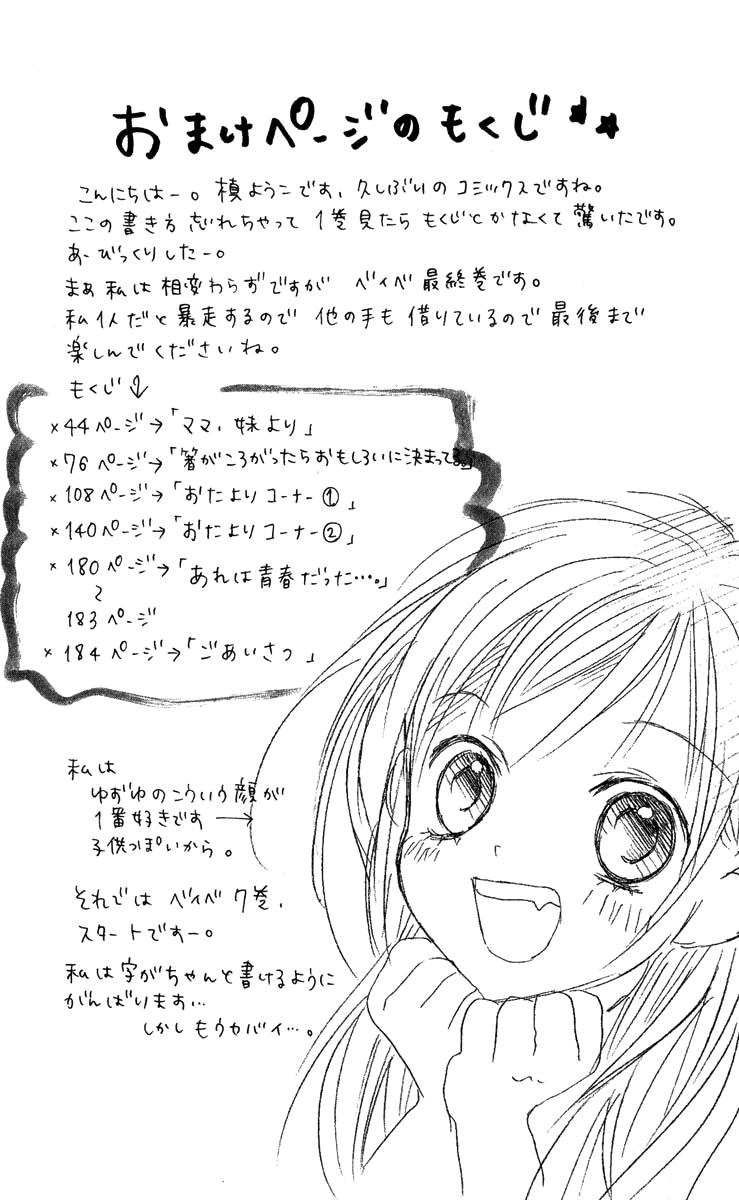 おまけページのもくじ**
こんにちはー。槙ようこです、久しぶりのコミックスですね。
ここの書き方忘れちゃって1巻見たらもくじとかなくて驚いたです。
あーびっくりしたー。
まぁ私は相変わらずですが ベイベ最終巻です。
私1人だと暴走するので 他の手も借りているので最後まで
楽しんでくださいね。
もくじ↓
×44ページ→「ママ、妹より」
×76ページ→「箸がころがったらおもしろいに決まってる。」
×108ページ→「おたよりコーナー①」
×140ページ→「おたよりコーナー②」
×180ページ→「あれは青春だった…。」
〜
183ページ
×184ページ→「ごあいさつ」
私は
ゆずゆのこういう顔が
1番好きです→
子供っぽいから。
それではベイベ7巻、
スタートですー。
私は字がちゃんと書けるように
がんばります…
しかしもうヤバイ…。